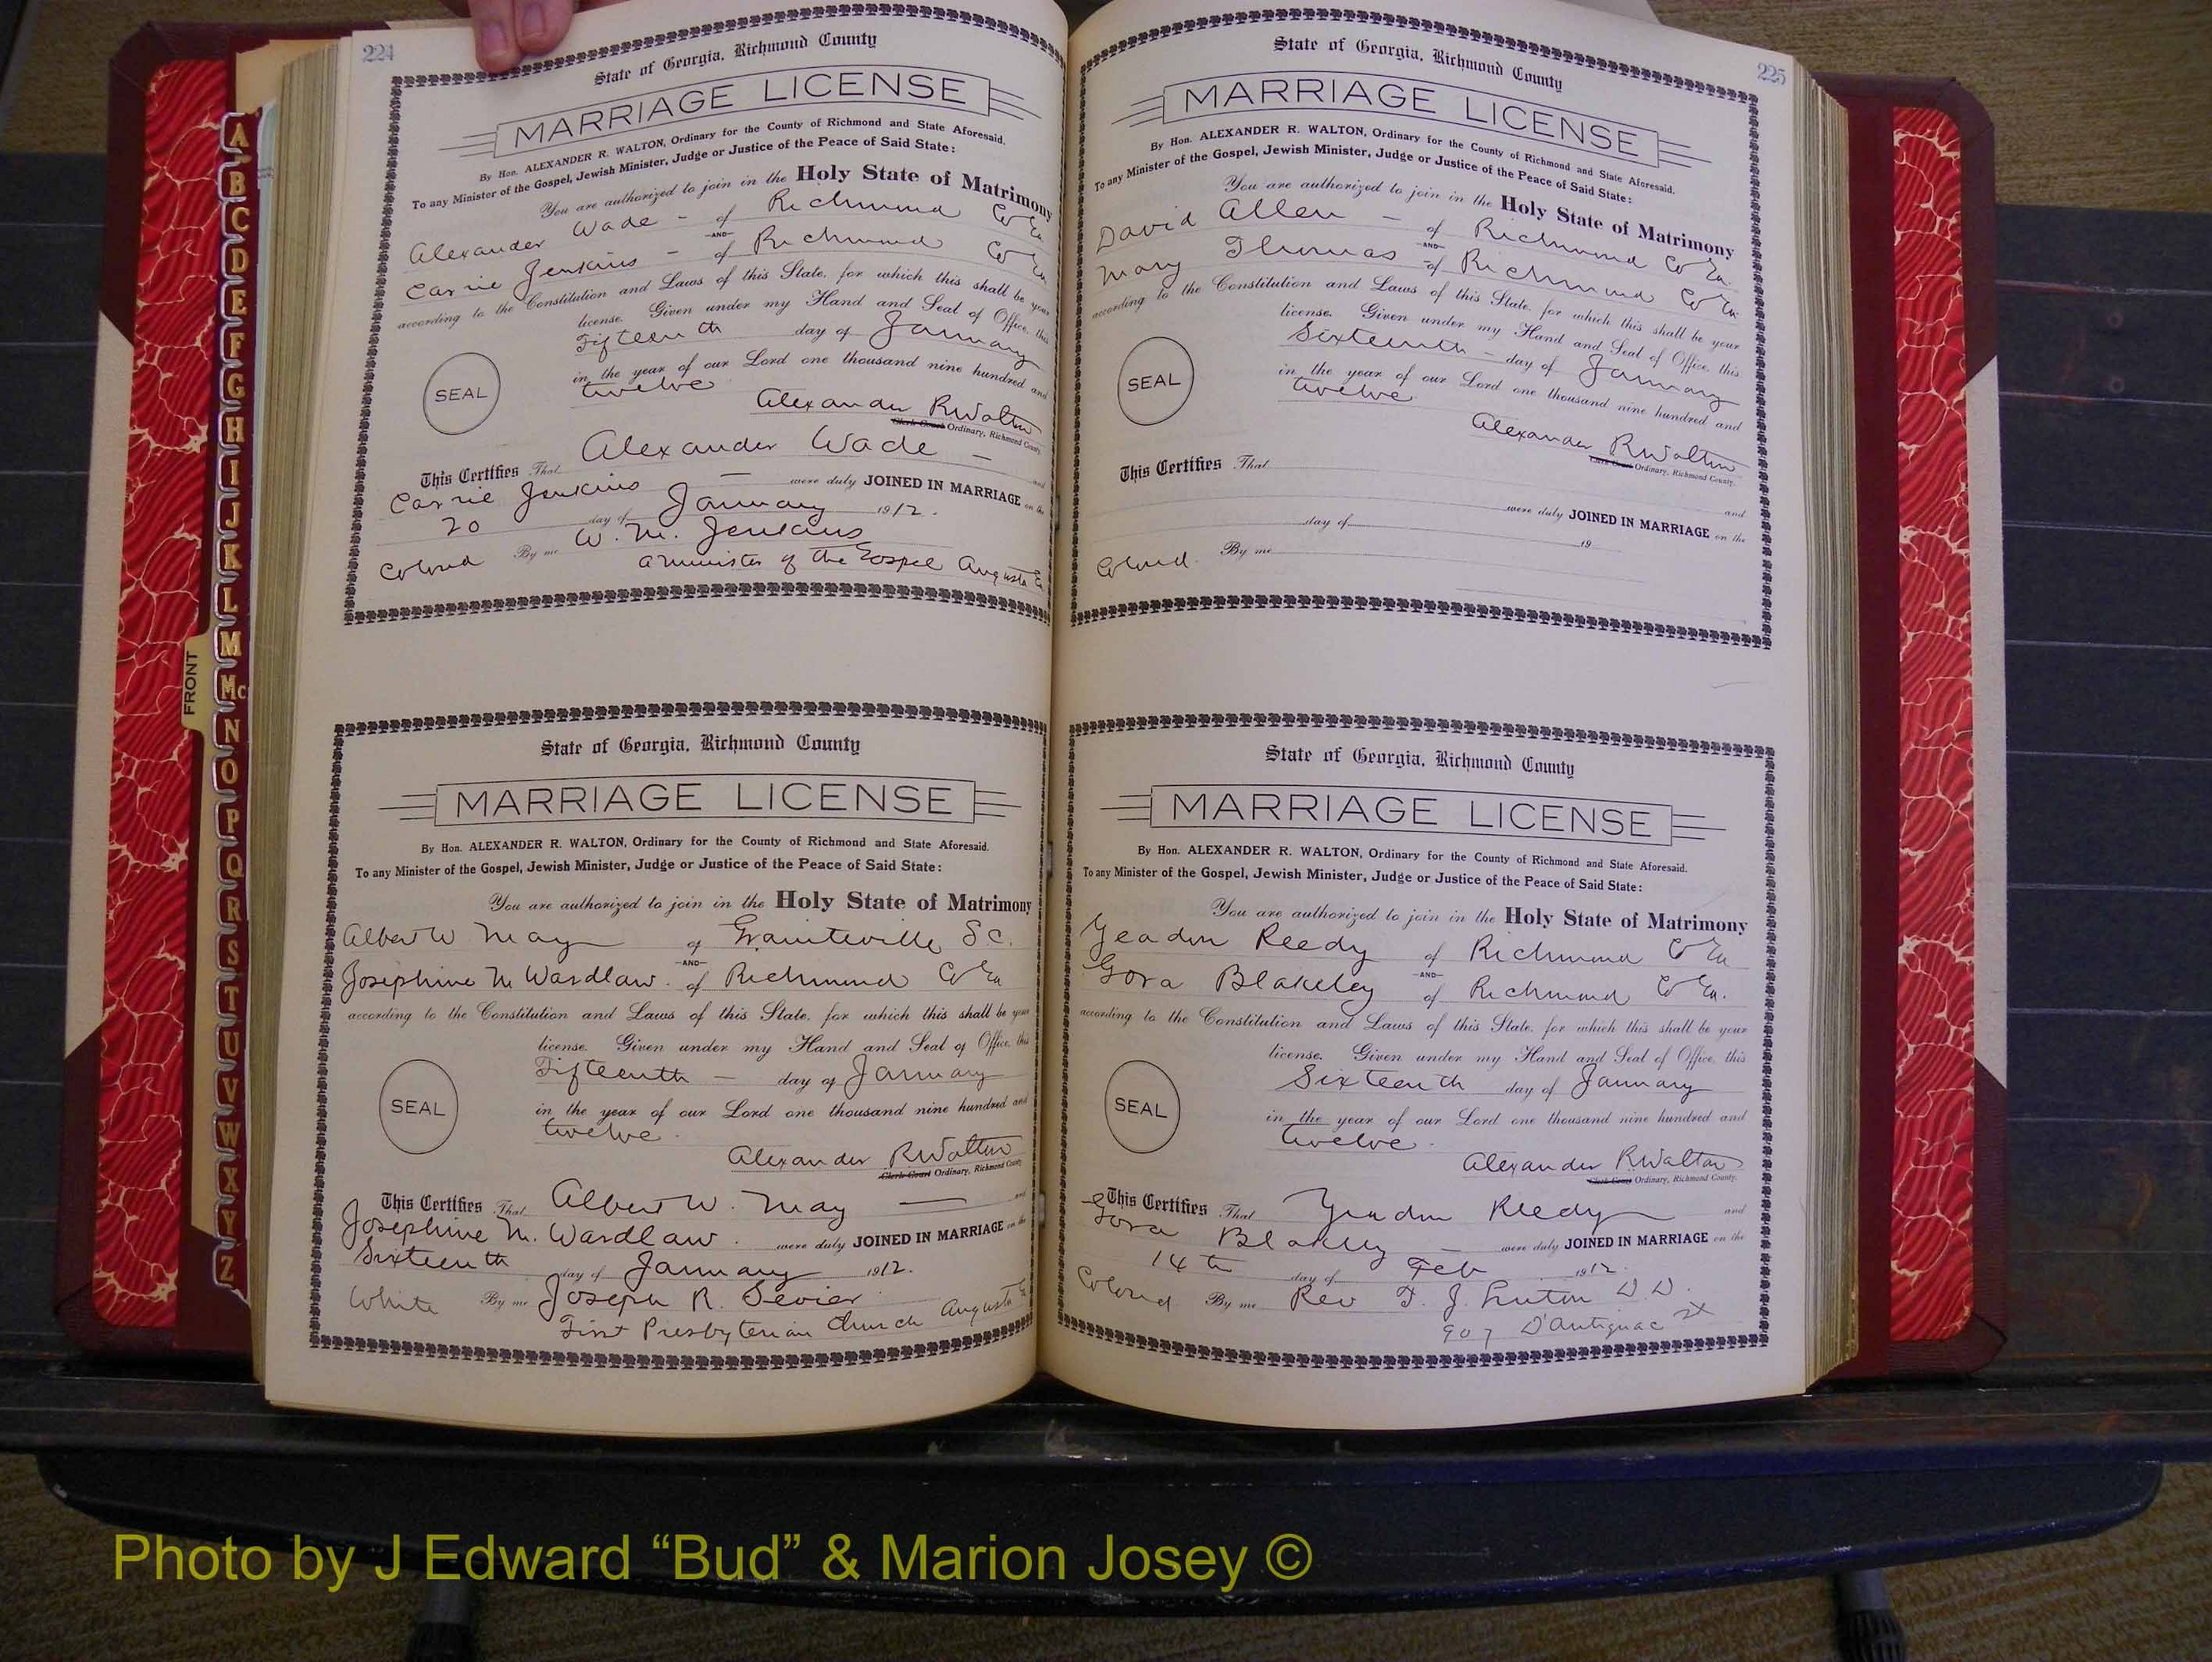 224
State of Georgia, Richmond County
MARRIAGE LICENSE
By Hon. ALEXANDER R. WALTON, Ordinary for the County of Richmond and State Aforesaid.
To any Minister of the Gospel, Jewish Minister, Judge or Justice of the Peace of Said State:
You are authorized to join in the Holy State of Matrimony
Alexander Wade - of Richmond Co Ga
AND
Carrie Jenkins - of Richmond Co Ga
according to the Constitution and Laws of this State, for which this shall be your
license. Given under my Hand and Seal of Office, this
Fifteenth day of January
in the year of our Lord one thousand nine hundred and
twelve
SEAL
Alexander R Walton
Clerk Court Ordinary, Richmond County.
This Certifies That Alexander Wade - and
Carrie Jenkins - were duly JOINED IN MARRIAGE on the
20 day of January 1912.
Colored By me W. M. Jenkins
a minister of the Gospel Augusta Ga
State of Georgia, Richmond County
MARRIAGE LICENSE
By Hon. ALEXANDER R. WALTON, Ordinary for the County of Richmond and State Aforesaid.
To any Minister of the Gospel, Jewish Minister, Judge or Justice of the Peace of Said State:
You are authorized to join in the Holy State of Matrimony
Albert W May of Graniteville S.C.
AND
Josephine M Wardlaw. of Richmond Co Ga
according to the Constitution and Laws of this State, for which this shall be your
license. Given under my Hand and Seal of Office, this
Fifteenth - day of January
in the year of our Lord one thousand nine hundred and
twelve.
SEAL
Alexander R Walton
Clerk Court Ordinary, Richmond County
This Certifies That Albert W. May - and
Josephine M. Wardlaw. were duly JOINED IN MARRIAGE on the
Sixteenth day of January 1912.
White By me Joseph R. Sevier
First Presbyterian Church Augusta Ga
225
State of Georgia, Richmond County
MARRIAGE LICENSE
By Hon. ALEXANDER R. WALTON, Ordinary for the County of Richmond and State Aforesaid.
To any Minister of the Gospel, Jewish Minister, Judge or Justice of the Peace of Said State:
You are authorized to join in the Holy State of Matrimony
David Allen - of Richmond Co Ga.
AND
Mary Thomas - of Richmond Co Ga
according to the Constitution and Laws of this State, for which this shall be your
license. Given under my Hand and Seal of Office, this
Sixteenth - day of January
in the year of our Lord one thousand nine hundred and
twelve
SEAL
Alexander R Walton
Clerk Court Ordinary, Richmond County.
This Certifies That and
were duly JOINED IN MARRIAGE on the
day of 19
Colored. By me
State of Georgia, Richmond County
MARRIAGE LICENSE
By Hon. ALEXANDER R. WALTON, Ordinary for the County of Richmond and State Aforesaid.
To any Minister of the Gospel, Jewish Minister, Judge or Justice of the Peace of Said State:
You are authorized to join in the Holy State of Matrimony
Yeadon Reedy of Richmond Co Ga
AND
Gora Blakeley of Richmond Co Ga.
according to the Constitution and Laws of this State, for which this shall be your
license. Given under my Hand and Seal of Office, this
Sixteenth day of January
in the year of our Lord one thousand nine hundred and
twelve.
SEAL
Alexander R Walton
Clerk Court Ordinary, Richmond County.
This Certifies That Yeadon Reedy and
Gora - were duly JOINED IN MARRIAGE on the
14th day of Feb 1912.
Colored By me Rev J. D D.
907 D'Antignac St
FRONT
A
B
C
D
E
F
G
H
I
J
K
L
M
Mc
N
O
P
Q
R
S
T
U
V
W
X
Y
Z
Photo by J Edward “Bud” & Marion Josey ©